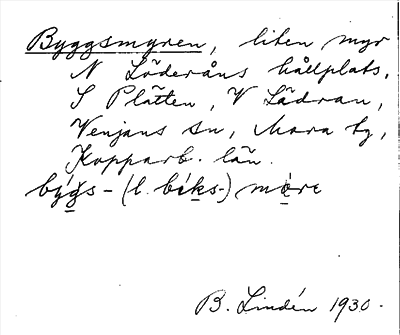 Byggsmyren, liten myr
N Löderåns hållplats,
S Plätten, V Lädran,
Venjans sn, Mora tg,
Kopparb. län.
býg̱s- (l. béḵs-) mo̱re
B. Lindén 1930.